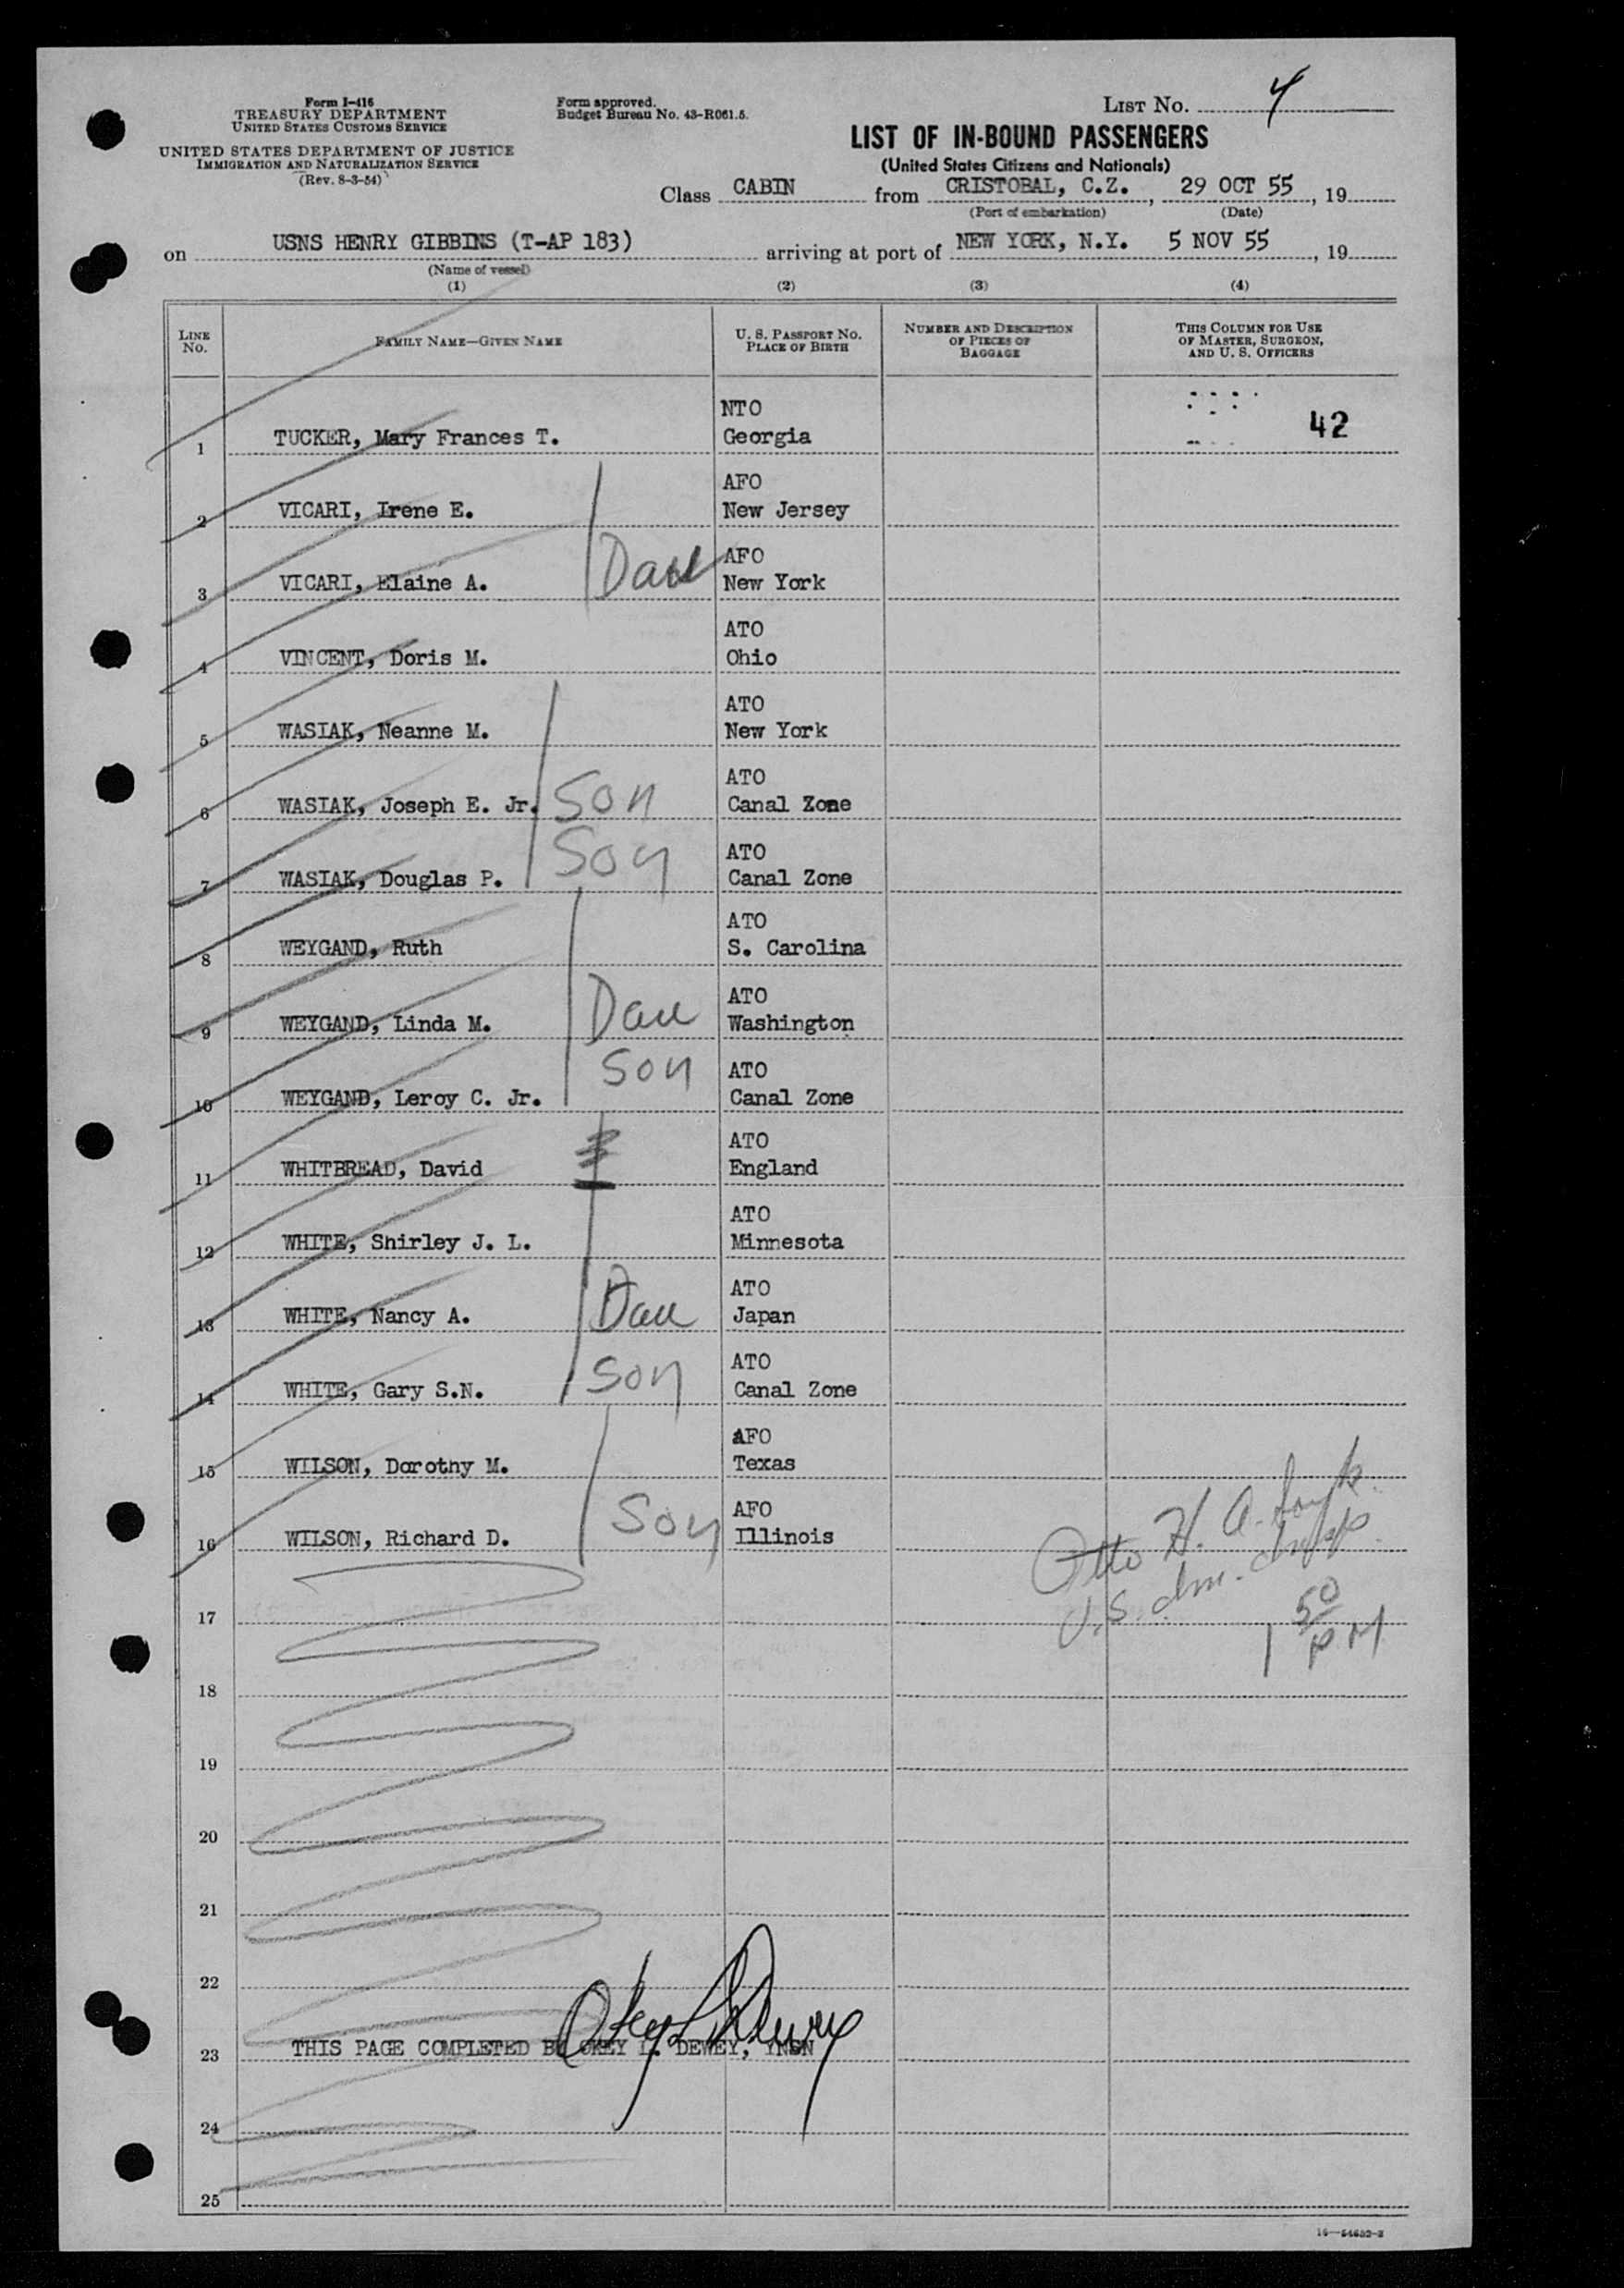 Form I-416
TREASURY DEPARTMENT
UNITED STATES CUSTOMS SERVICE
UNITED STATES DEPARTMENT OF JUSTICE
IMMIGRATION AND NATURALIZATION SERVICE
(Rev. 8-3-54)
Form approved.
Budget Bureau No. 43-R061.5.
LIST No. 4
LIST OF IN-BOUND PASSENGERS
(United States Citizens and Nationals)
Class CABIN from CRISTOBAL, C.Z., 29 OCT 55, 19
(Port of embarkation) (Date)
on USNS HENRY GIBBINS (T-AP 183) arriving at port of NEW YORK, N.Y. 5 NOV 55, 19
(Name of vessel)
(1) (2) (3) (4)
LINE No. FAMILY NAME—GIVEN NAME U. S. PASSPORT No. PLACE OF BIRTH NUMBER AND DESCRIPTION OF PIECES OF BAGGAGE THIS COLUMN FOR USE OF MASTER, SURGEON, AND U. S. OFFICERS
NTO
1 TUCKER, Mary Frances T. Georgia 42
AFO
2 VICARI, Irene E. New Jersey
AFO
3 VICARI, Elaine A. Dau New York
ATO
4 VINCENT, Doris M. Ohio
ATO
5 WASIAK, Neanne M. New York
ATO
6 WASIAK, Joseph E. Jr. Son Canal Zone
ATO
7 WASIAK, Douglas P. Son Canal Zone
ATO
8 WEYGAND, Ruth S. Carolina
ATO
9 WEYGAND, Linda M. Dau Washington
ATO
10 WEYGAND, Leroy C. Jr. Son Canal Zone
ATO
11 WHITBREAD, David England
ATO
12 WHITE, Shirley J. L. Minnesota
ATO
13 WHITE, Nancy A. Dau Japan
ATO
14 WHITE, Gary S.N. Son Canal Zone
AFO
15 WILSON, Dorothy M. Texas
AFO
16 WILSON, Richard D. Son Illinois
Otto H. A.
U.S. Imm. Insp.
1 50 PM
17
18
19
20
21
22
Okey L. Dewey
23 THIS PAGE COMPLETED BY OKEY L. DEWEY, YNSN
24
25